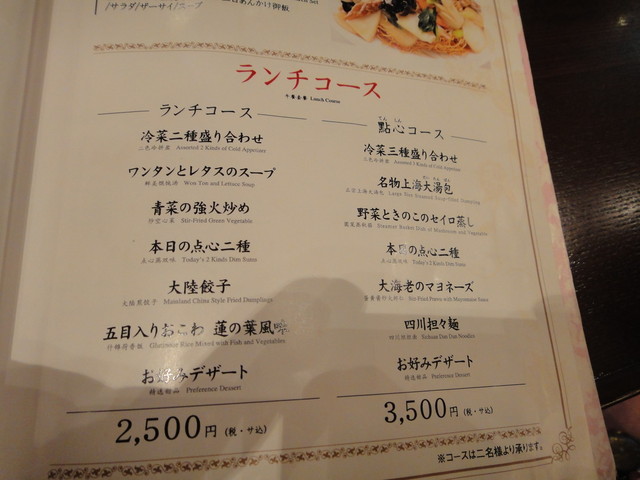 /サラダ/ザーサイ/スープ
あんかけ御飯
ランチコース
Lunch Course
ランチコース
冷菜二種盛り合わせ
Assorted 2 Kinds of Cold Appetizers
ワンタンとレタスのスープ
Won Ton and Lettuce Soup
青菜の強火炒め
Stir-Fried Green Vegetable
本日の点心二種
Today's 2 Kinds Dim Sums
大陸餃子
Mainland China Style Fried Dumplings
五目入りおこわ 蓮の葉風味
Glutinous Rice Mixed with Fish and Vegetables
お好みデザート
Preference Dessert
2,500円 (税・サ込)
てん しん
點心コース
冷菜三種盛り合わせ
Assorted 3 Kinds of Cold Appetizers
名物上海大湯包
野菜ときのこのセイロ蒸し
Steamer Basket Dish of Mushroom and Vegetable
本日の点心二種
Today's 2 Kinds Dim Sums
大海老のマヨネーズ
Stir-Fried Prawn with Mayonnaise Sauce
四川担々麺
Sichuan Dan Dan Noodles
お好みデザート
Preference Dessert
3,500円 (税・サ込)
※コースは二名様より承ります。